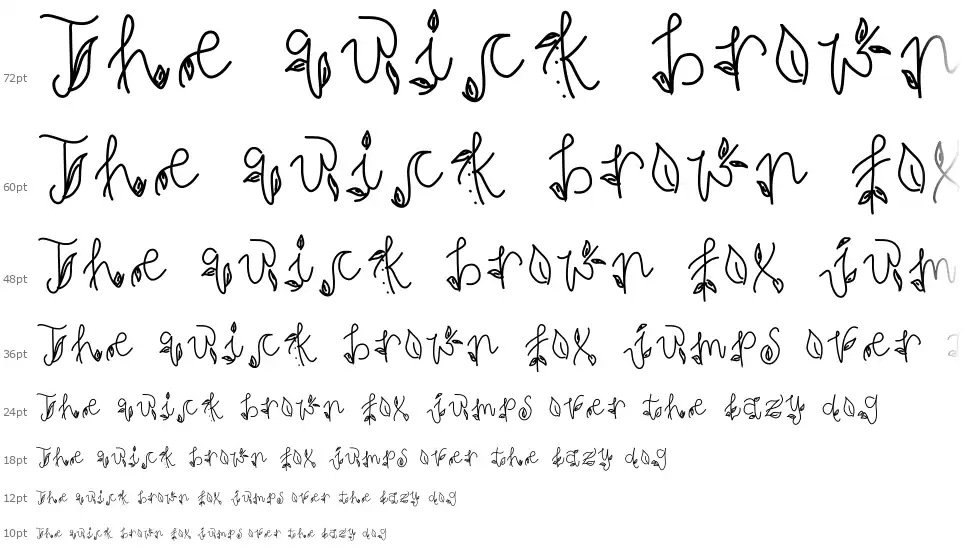 72pt The quick brown
60pt The quick brown fox
48pt The quick brown fox jum
36pt The quick brown fox jumps over
24pt The quick brown fox jumps over the lazy dog
18pt The quick brown fox jumps over the lazy dog
12pt The quick brown fox jumps over the lazy dog
10pt The quick brown fox jumps over the lazy dog